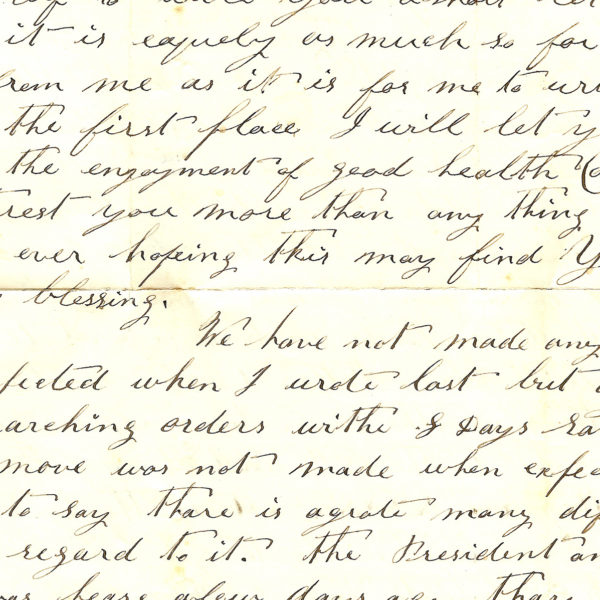 it is equely as much so for
from me as it is for me to wri
the first place I will let y
the engoyment of good health
rest you more than any thing
ever hopeing this may find Y
blessing.
We have not made any
pected when I wrote last but
arching orders withe 8 Days Ra
move was not made when expec
to say thare is agrate many dif
regard to it. the President an
was heare afew days ago thare